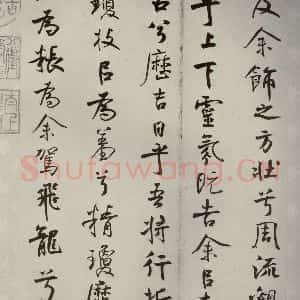 及余飾之方壯兮周流觀
乎上下靈氛既告余㠯
占兮歷吉日乎吾將行折
瓊枝㠯為羞兮精瓊靡
為粻為余駕飛龍兮
Shufawang.Cn